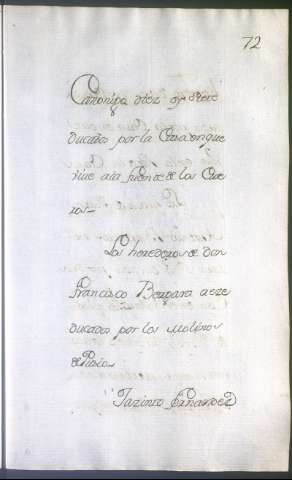 72
Canoniga diez y siete
ducados por la Casa en que
vive a la fuente de los Cue
ros—
Los herederos de don
Francisco Bergara a eze
ducados por los molinos
de Picos
Jazinto Fernandez